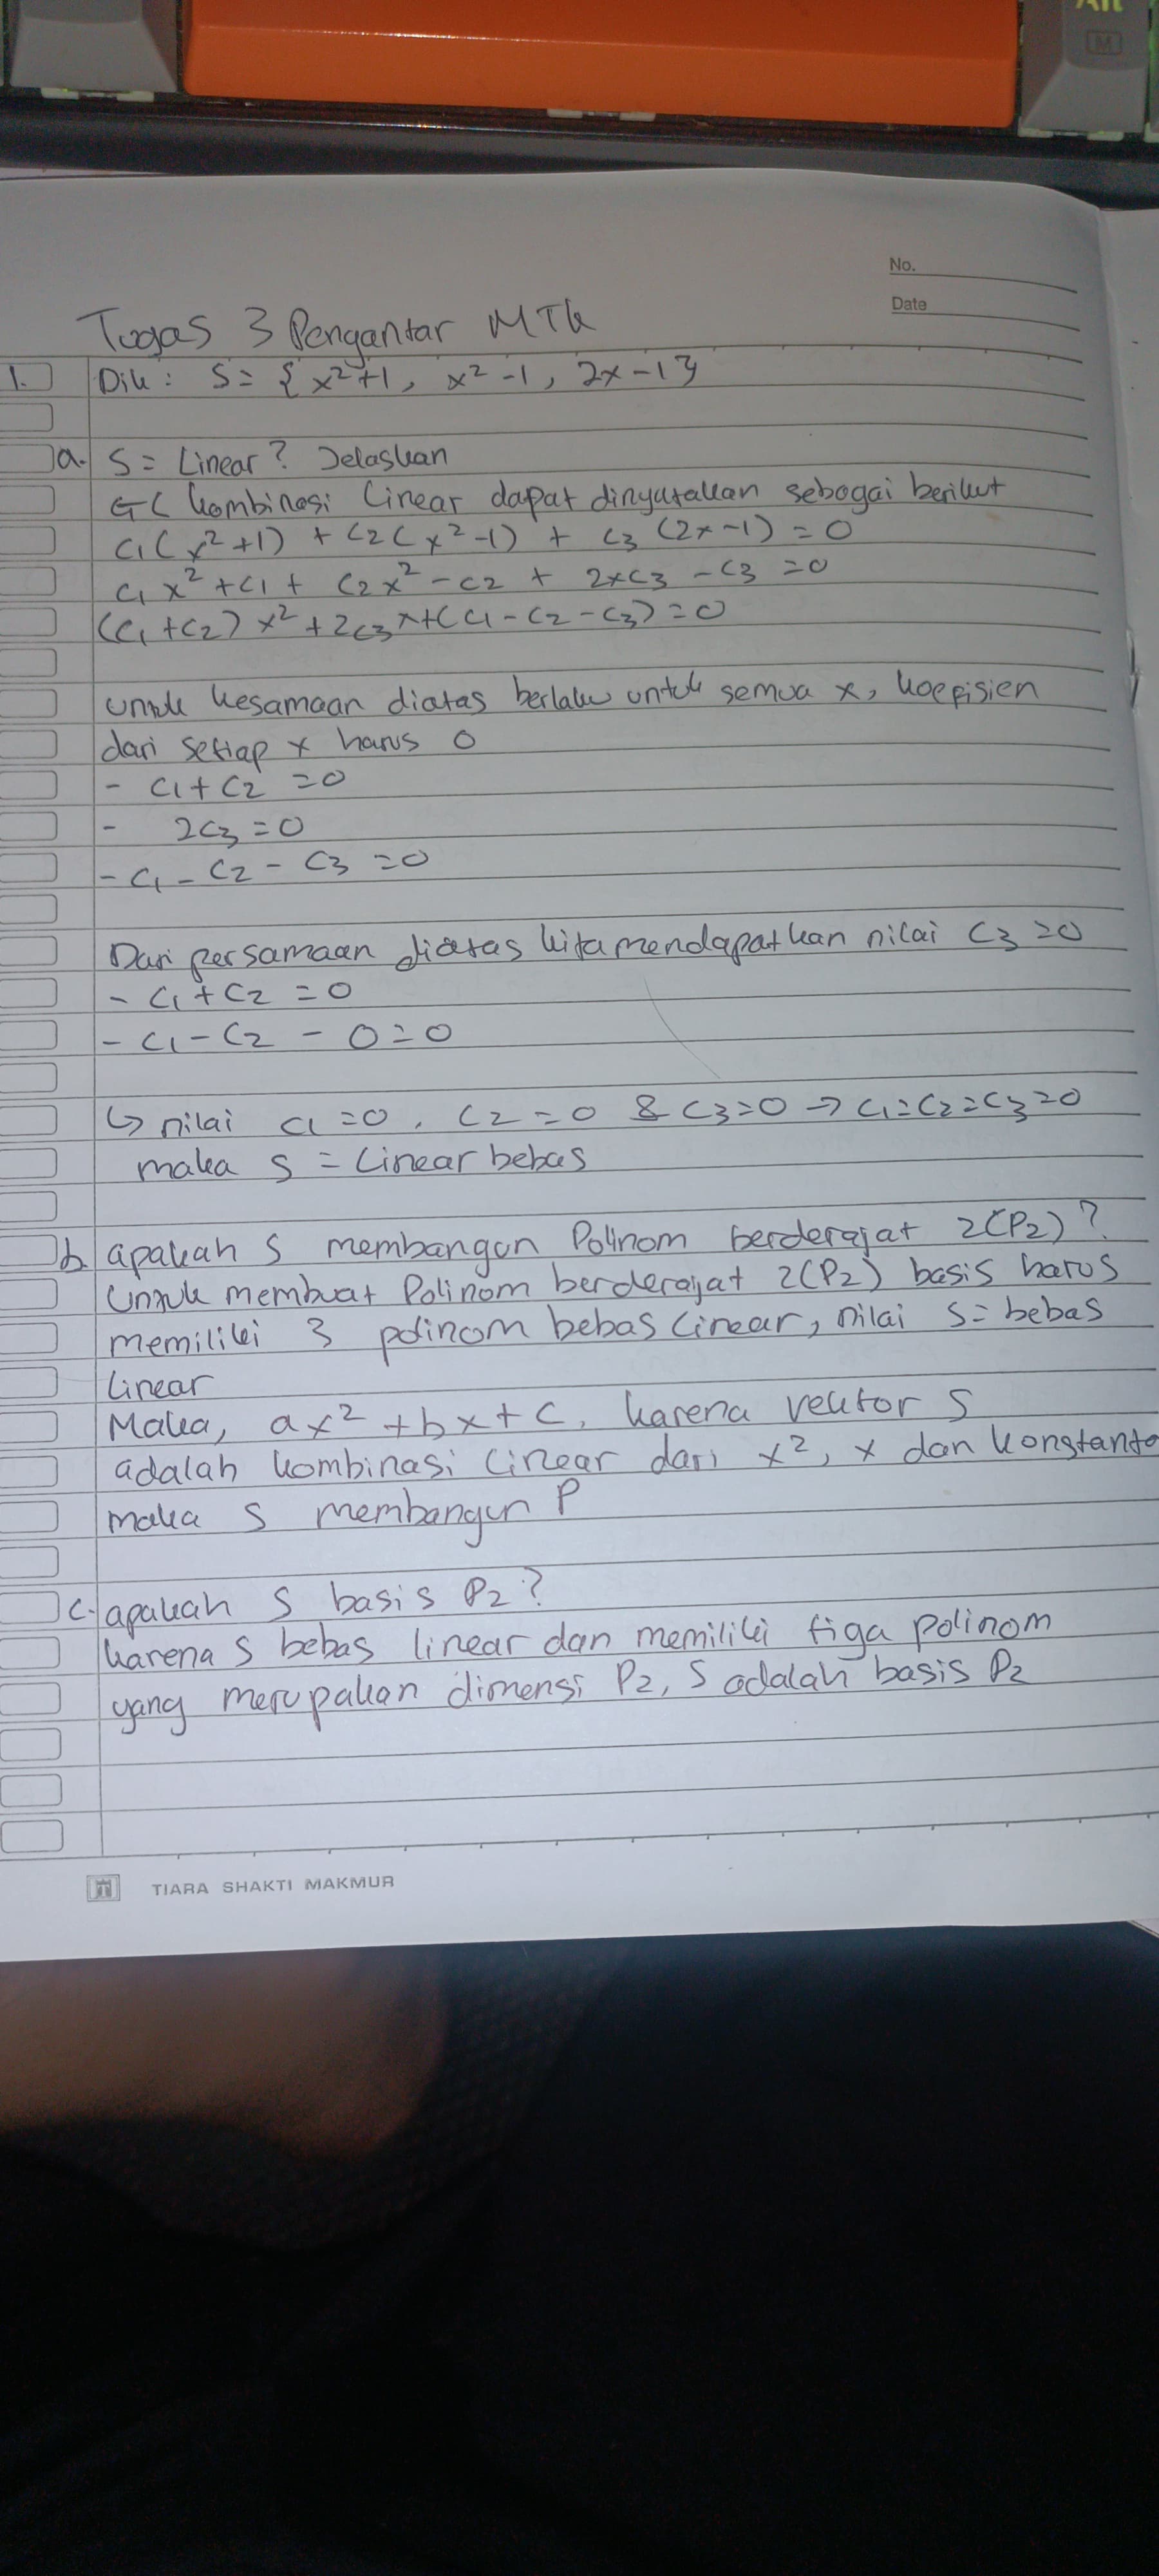 Alt
M
No.
Date
Tugas 3 Pengantar MTK
1. Dik : S = { x²+1, x²-1, 2x-1 }
a. S = Linear? Jelaskan
kombinasi linear dapat dinyatakan sebagai berikut
c₁(x²+1) + c₂(x²-1) + c₃(2x-1) = 0
c₁x²+c₁ + c₂x²-c₂ + 2xc₃ -c₃ =0
(c₁+c₂)x²+2c₃x+(c₁-c₂-c₃)=0
untuk kesamaan diatas berlaku untuk semua x, koefisien
dari setiap x harus 0
- c₁+c₂ =0
- 2c₃ =0
- c₁-c₂-c₃ =0
Dari persamaan diatas kita mendapatkan nilai c₃=0
- c₁+c₂ =0
- c₁-c₂ - 0=0
↳ nilai c₁=0, c₂=0 & c₃=0 → c₁=c₂=c₃=0
maka S = Linear bebas
b. apakah S membangun Polinom berderajat 2(P₂)?
Untuk membuat Polinom berderajat 2(P₂) basis harus
memiliki 3 polinom bebas linear, nilai S= bebas
linear
Maka, ax²+bx+c, karena vektor S
adalah kombinasi linear dari x², x dan konstanta
maka S membangun P
c. apakah S basis P₂?
karena S bebas linear dan memiliki tiga polinom
yang merupakan dimensi P₂, S adalah basis P₂
TIARA SHAKTI MAKMUR